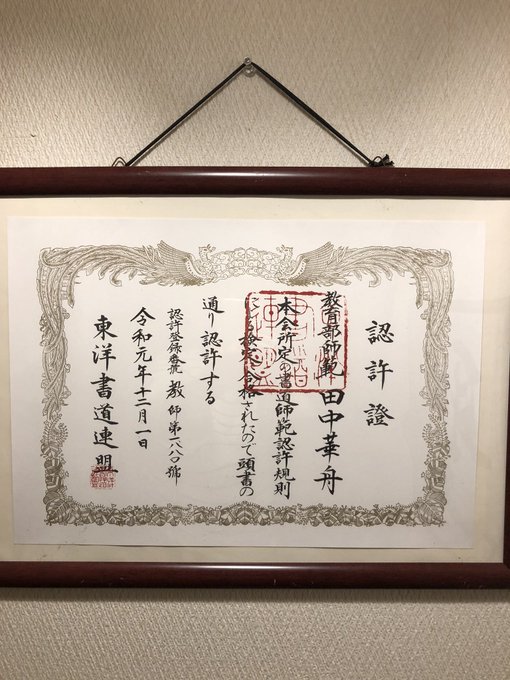 認許證
教育部師範 田中華舟
本会所定の書道師範認許規則
による検定に合格されたので頭書の
通り認許する
認許登録番號 教師第一八八〇號
令和元年十二月一日
東洋書道連盟